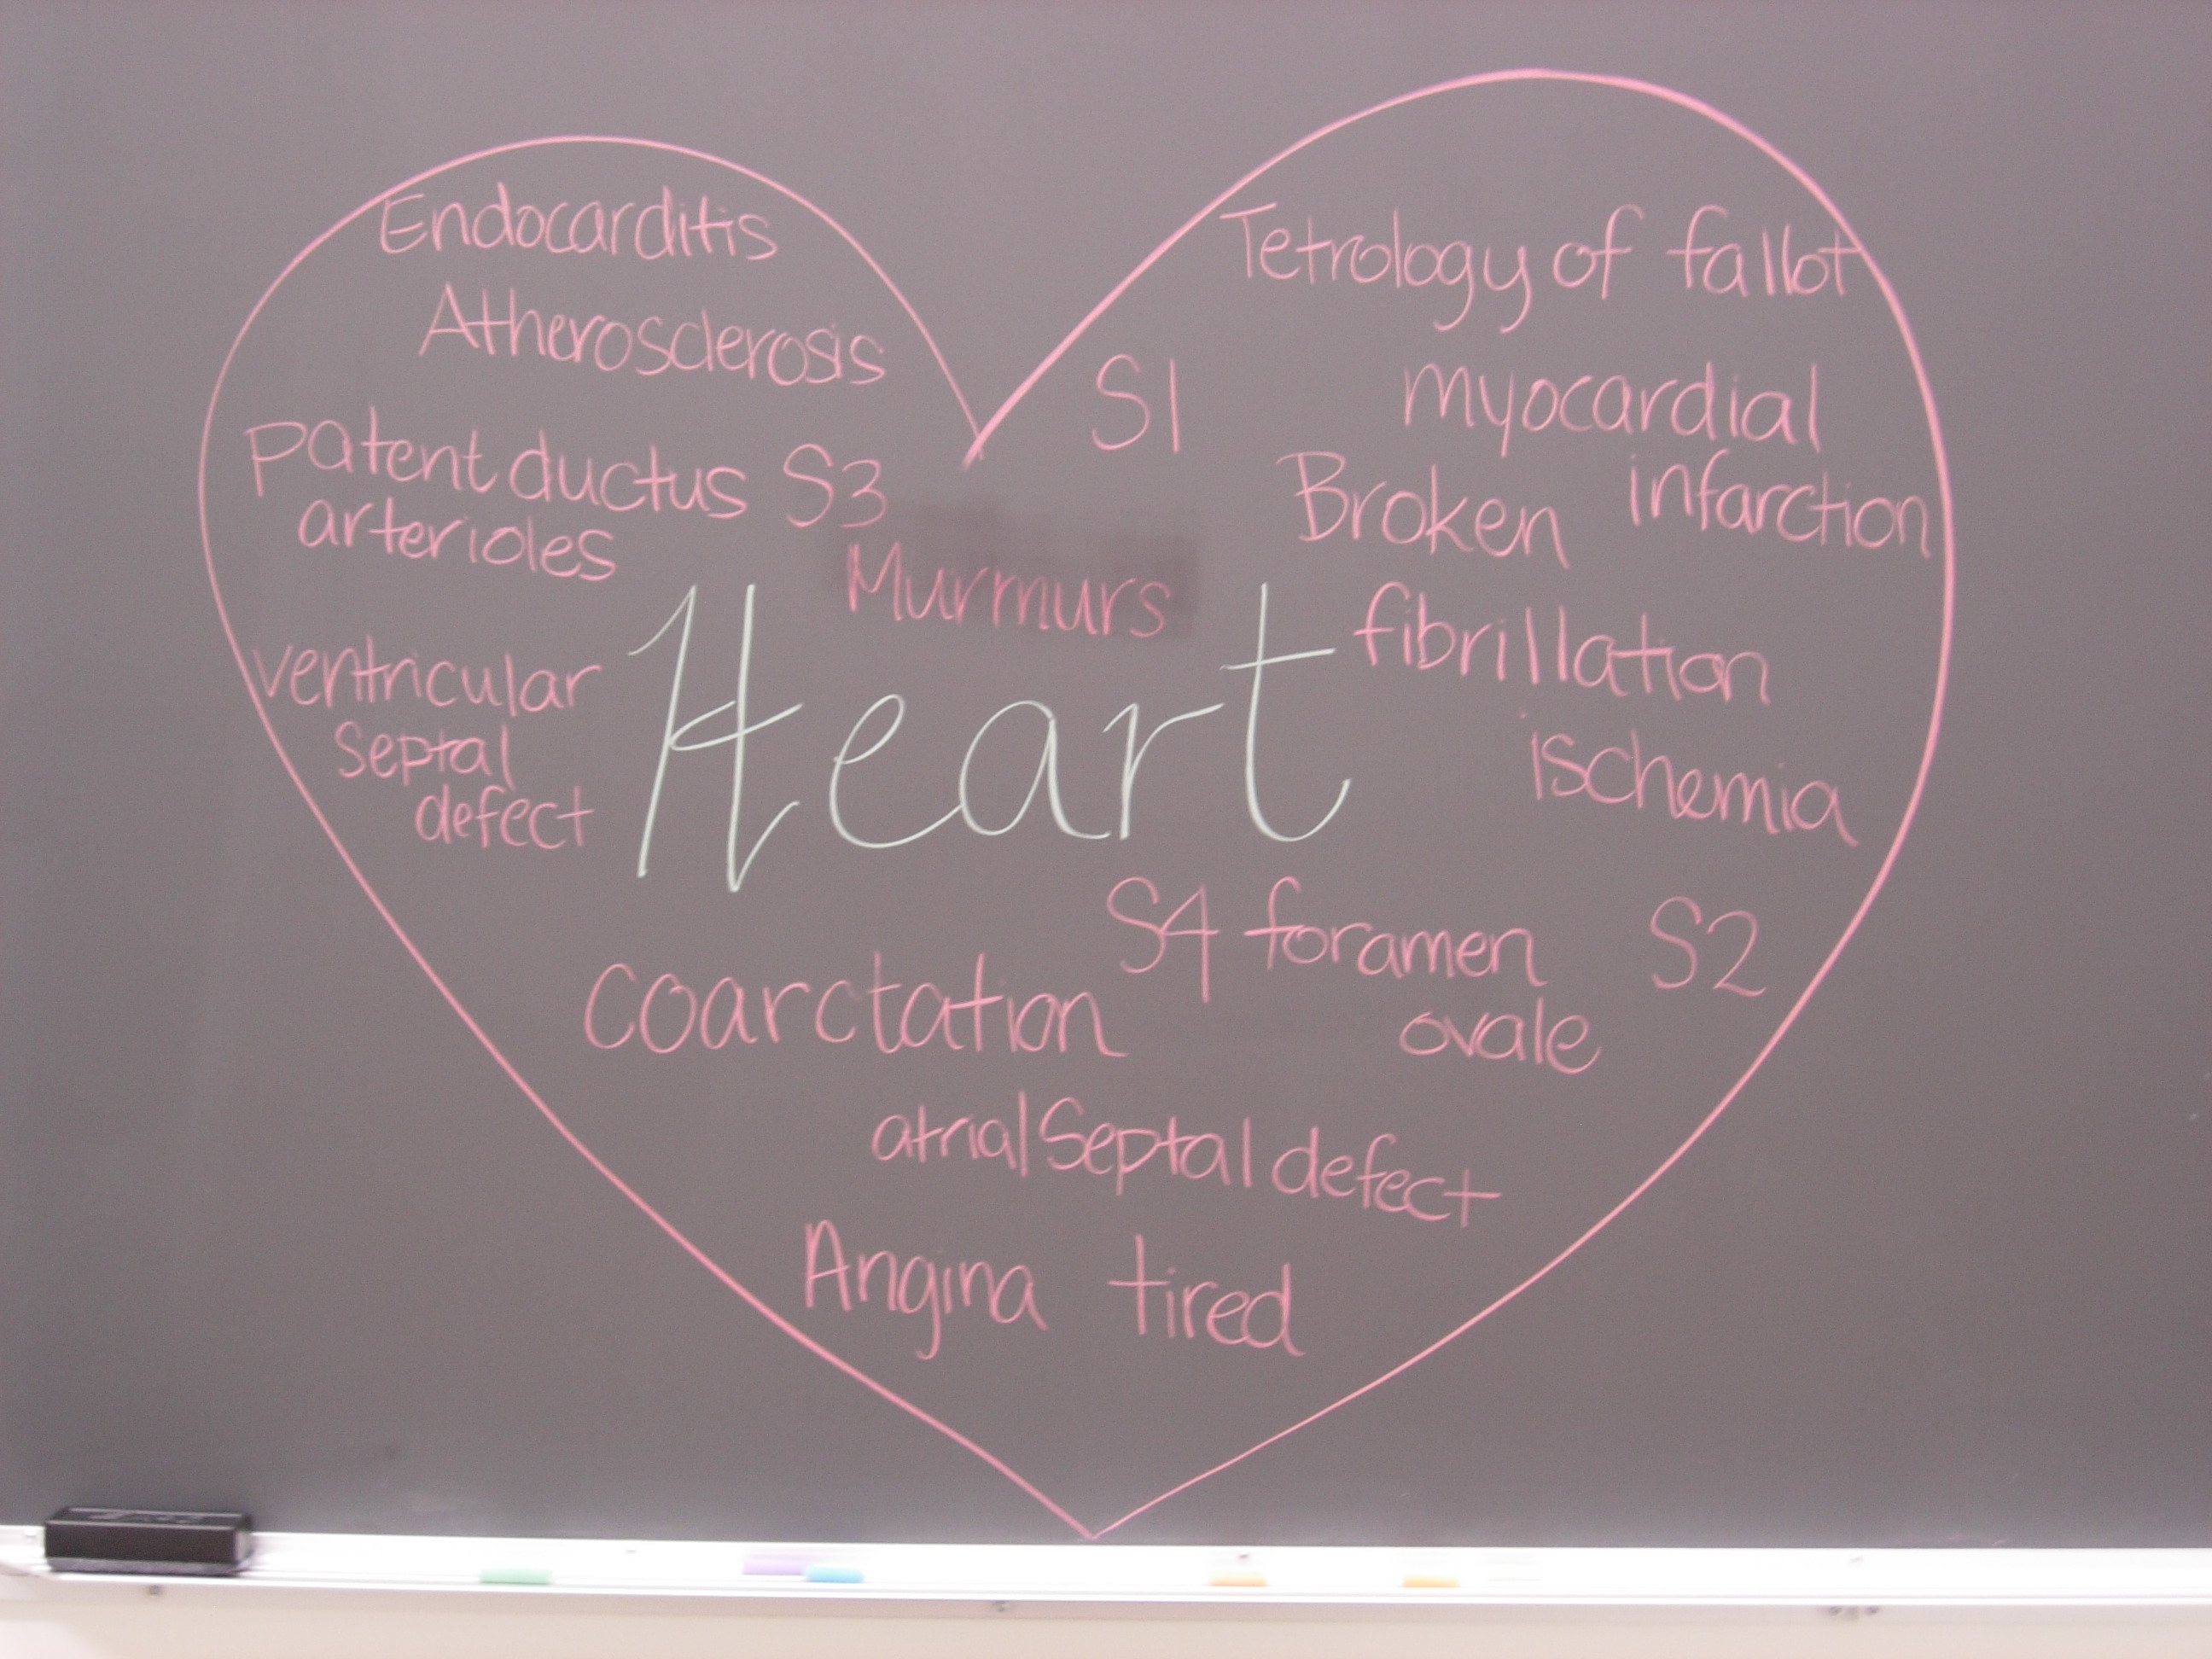 Endocarditis
Atherosclerosis
Patent ductus
arterioles
S3
S1
Tetrology of fallot
myocardial
infarction
Broken
Murmurs
fibrillation
ventricular
Septal
defect
Heart
ischemia
S4
foramen
ovale
S2
Coarctation
atrial Septal defect
Angina
tired